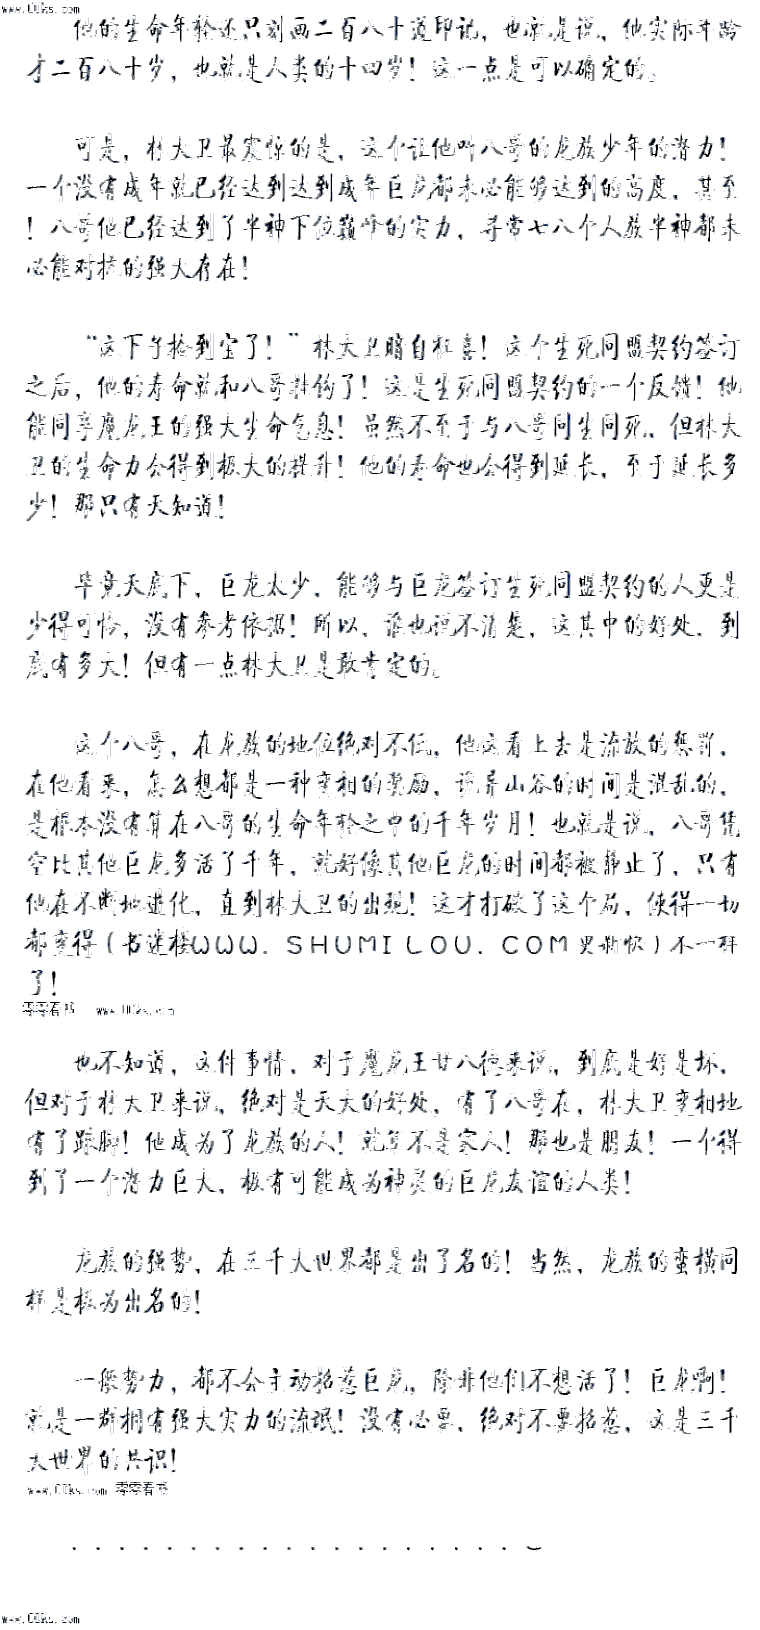 www.00ks.com
他的生命年轮还只刻画二百八十道印记，也就是说，他实际年龄
才二百八十岁，也就是人类的十四岁！这一点是可以确定的。
可是，林大卫最震惊的是，这个让他叫八哥的龙族少年的潜力！
一个没有成年就已经达到达到成年巨龙都未必能够达到的高度，甚至
！八哥他已经达到了半神下位巅峰的实力，寻常七八个人族半神都未
必能对抗的强大存在！
“这下子捡到宝了！”林大卫暗自狂喜！这个生死同盟契约签订
之后，他的寿命就和八哥挂钩了！这是生死同盟契约的一个反馈！他
能同享魔龙王的强大生命气息！虽然不至于与八哥同生同死，但林大
卫的生命力会得到极大的提升！他的寿命也会得到延长，至于延长多
少！那只有天知道！
毕竟天底下，巨龙太少，能够与巨龙签订生死同盟契约的人更是
少得可怜，没有参考依据！所以，谁也说不清楚，这其中的好处，到
底有多大！但有一点林大卫是敢肯定的。
这个八哥，在龙族的地位绝对不低，他这看上去是流放的惩罚，
在他看来，怎么想都是一种变相的奖励，诡异山谷的时间是混乱的，
是根本没有算在八哥的生命年轮之中的千年岁月！也就是说，八哥凭
空比其他巨龙多活了千年，就好像其他巨龙的时间都被静止了，只有
他在不断地进化，直到林大卫的出现！这才打破了这个局，使得一切
都变得（书迷楼WWW．SHUMILOU．COM更新快）不一样
了！
零零看书 www.00ks.com
也不知道，这件事情，对于魔龙王廿八德来说，到底是好是坏，
但对于林大卫来说，绝对是天大的好处，有了八哥在，林大卫变相地
有了跺脚！他成为了龙族的人！就算不是家人！那也是朋友！一个得
到了一个潜力巨大，极有可能成为神灵的巨龙友谊的人类！
龙族的强势，在三千大世界都是出了名的！当然，龙族的蛮横同
样是极为出名的！
一般势力，都不会主动招惹巨龙，除非他们不想活了！巨龙啊！
就是一群拥有强大实力的流氓！没有必要，绝对不要招惹，这是三千
大世界的共识！
www.00ks.com 零零看书
．．．．．．．．．．．．．．．．．．．．）
www.00ks.com